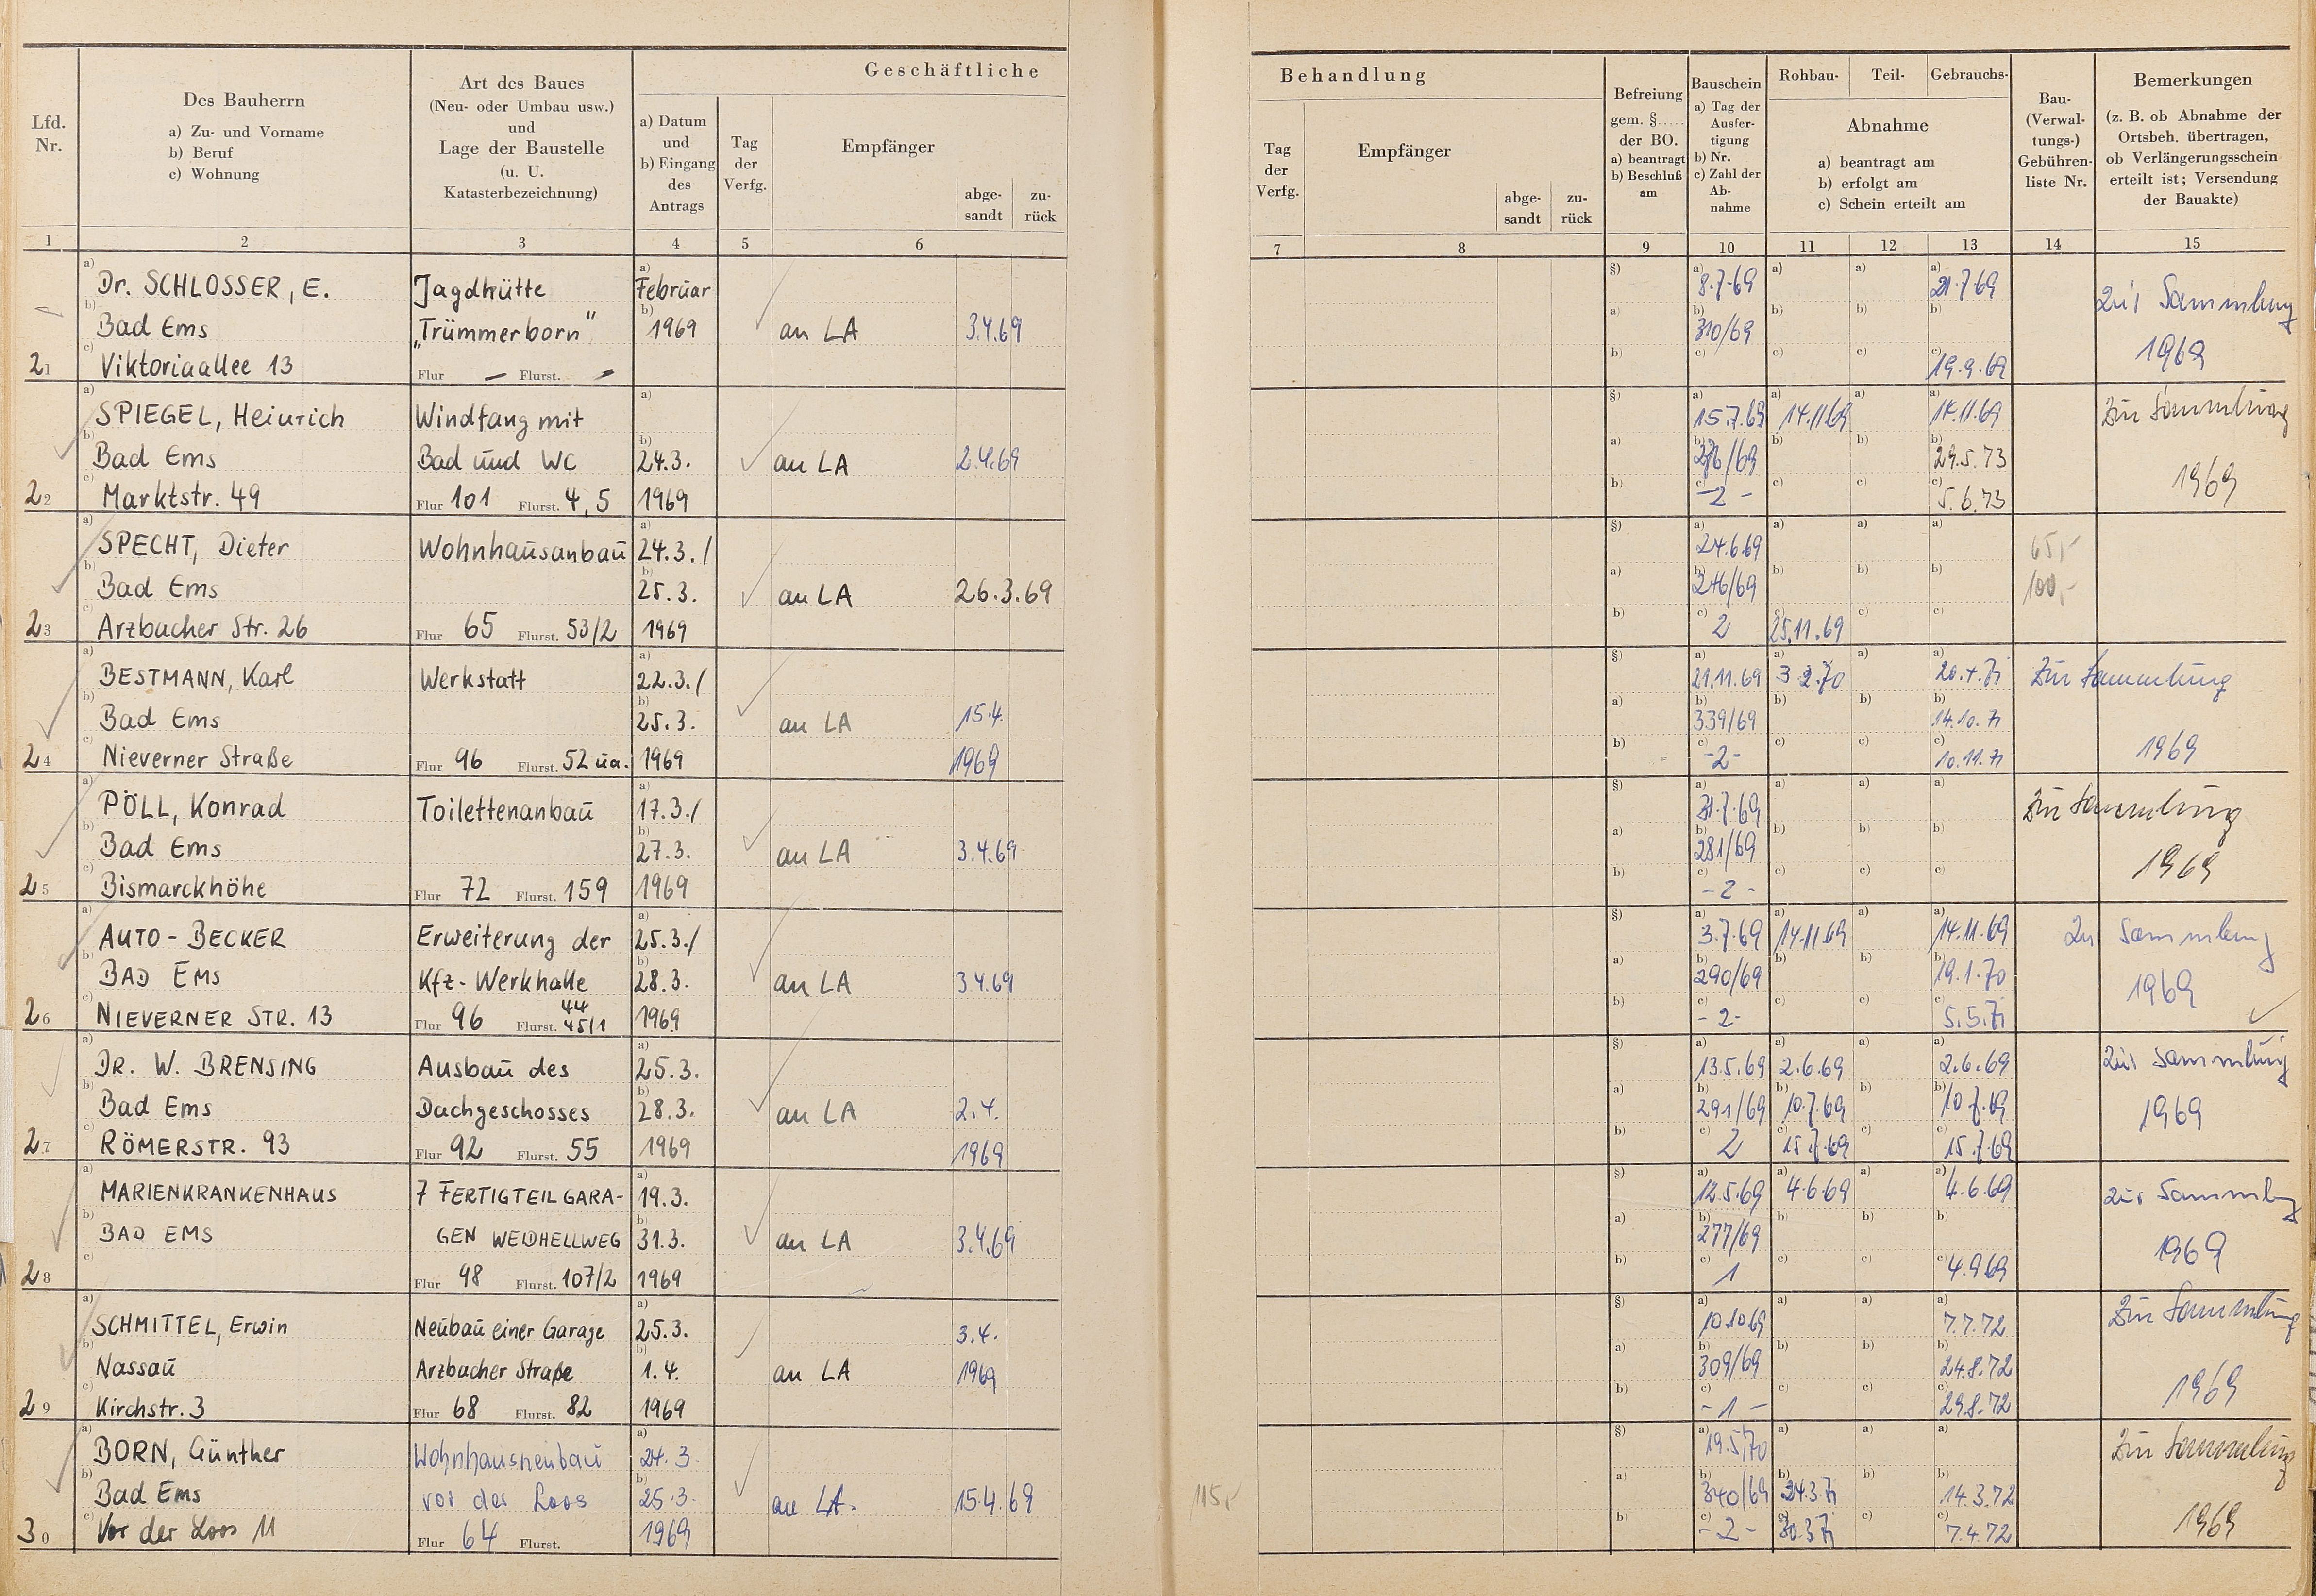 Geschäftliche
Behandlung
Lfd. Nr.
Des Bauherrn
a) Zu- und Vorname
b) Beruf
c) Wohnung
Art des Baues
(Neu- oder Umbau usw.)
und
Lage der Baustelle
(u. U.
Katasterbezeichnung)
a) Datum
und
b) Eingang
des
Antrags
Tag
der
Verfg.
Empfänger
abge-
sandt
zu-
rück
Tag
der
Verfg.
Empfänger
abge-
sandt
zu-
rück
Befreiung
gem. §.....
der BO.
a) beantragt
b) Beschluß
am
Bauschein
a) Tag der
Ausfer-
tigung
b) Nr.
c) Zahl der
Ab-
nahme
Rohbau-
Teil-
Gebrauchs-
Abnahme
a) beantragt am
b) erfolgt am
c) Schein erteilt am
Bau-
(Verwal-
tungs-)
Gebühren-
liste Nr.
Bemerkungen
(z. B. ob Abnahme der
Ortsbeh. übertragen,
ob Verlängerungsschein
erteilt ist; Versendung
der Bauakte)
1 2 3 4 5 6 7 8 9 10 11 12 13 14 15
Dr. SCHLOSSER, E. Jagdhütte Februar 8.7.69 21.7.69 zur Sammlung
Bad Ems „Trümmerborn" 1969 an LA 3.4.69 310/69 1969
21 Viktoriaallee 13 Flur – Flurst. – 19.9.69
SPIEGEL, Heinrich Windfang mit 15.7.69 14.11.69 14.11.69 Zur Sammlung
Bad Ems Bad und WC 24.3. an LA 2.4.69 29.5.73
22 Marktstr. 49 Flur 101 Flurst. 4,5 1969 -2- 5.6.73 1969
SPECHT, Dieter Wohnhausanbau 24.3./ 24.6.69 65,-
Bad Ems 25.3. an LA 26.3.69 246/69 100,-
23 Arzbacher Str. 26 Flur 65 Flurst. 53/2 1969 2 25.11.69
BESTMANN, Karl Werkstatt 22.3./ 21.11.69 3.2.70 20.4.71 Zur Sammlung
Bad Ems 25.3. an LA 15.4. 339/69 14.10.71
24 Nieverner Straße Flur 96 Flurst. 52 ua. 1969 1969 -2- 10.11.71 1969
PÖLL, Konrad Toilettenanbau 17.3./ 21.7.69 Zur Sammlung
Bad Ems 27.3. an LA 3.4.69 281/69
25 Bismarckhöhe Flur 72 Flurst. 159 1969 -2- 1969
AUTO-BECKER Erweiterung der 25.3./ 3.7.69 14.11.69 14.11.69 Zur Sammlung
BAD EMS Kfz-Werkhalle 28.3. an LA 3.4.69 290/69 19.1.70 1969
26 NIEVERNER STR. 13 Flur 96 Flurst. 44 45/1 1969 -2- 5.5.71
DR. W. BRENSING Ausbau des 25.3. 13.5.69 2.6.69 2.6.69 zur Sammlung
Bad Ems Dachgeschosses 28.3. an LA 2.4. 291/69 10.7.69 10.7.69 1969
27 RÖMERSTR. 93 Flur 92 Flurst. 55 1969 1969 2 15.7.69 15.7.69
MARIENKRANKENHAUS 7 FERTIGTEILGARA- 19.3. 12.5.69 4.6.69 4.6.69 zur Sammlung
BAD EMS GEN WEIDHELLWEG 31.3. an LA 3.4.69 277/69 1969
28 Flur 98 Flurst. 107/2 1969 1 4.9.69
SCHMITTEL, Erwin Neubau einer Garage 25.3. 3.4. 10.10.69 7.7.72 Zur Sammlung
Nassau Arzbacher Straße 1.4. an LA 1969 309/69 24.8.72
29 Kirchstr. 3 Flur 68 Flurst. 82 1969 -1- 29.8.72 1969
BORN, Günther Wohnhausneubau 24.3. 19.5.70 Zur Sammlung
Bad Ems vor der Loos 25.3. an LA. 15.4.69 115,- 340/69 24.3.71 14.3.72
30 Vor der Loos 11 Flur 64 Flurst. 1969 -2- 30.3.71 7.4.72 1969